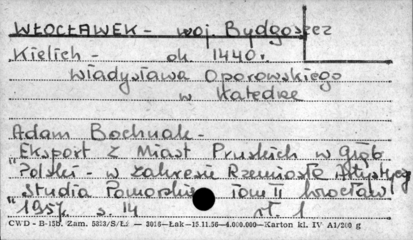 WŁOCŁAWEK - woj. Bydgoszcz
Kielich - ok 1440r.
Władysława Oporowskiego
w Katedrze
Adam Bochnak -
"Eksport z Miast Pruskich w głąb
Polski - w zakresie Rzemiosła Artystycz
"Studia Pomorskie tom II Wrocław
1957. s. 14 il. 1
CWD - B-15b. Zam. 5323/S/Łż — 3016—Łak—15.11.56—4.000.000—Karton kl. IV A1/200 g